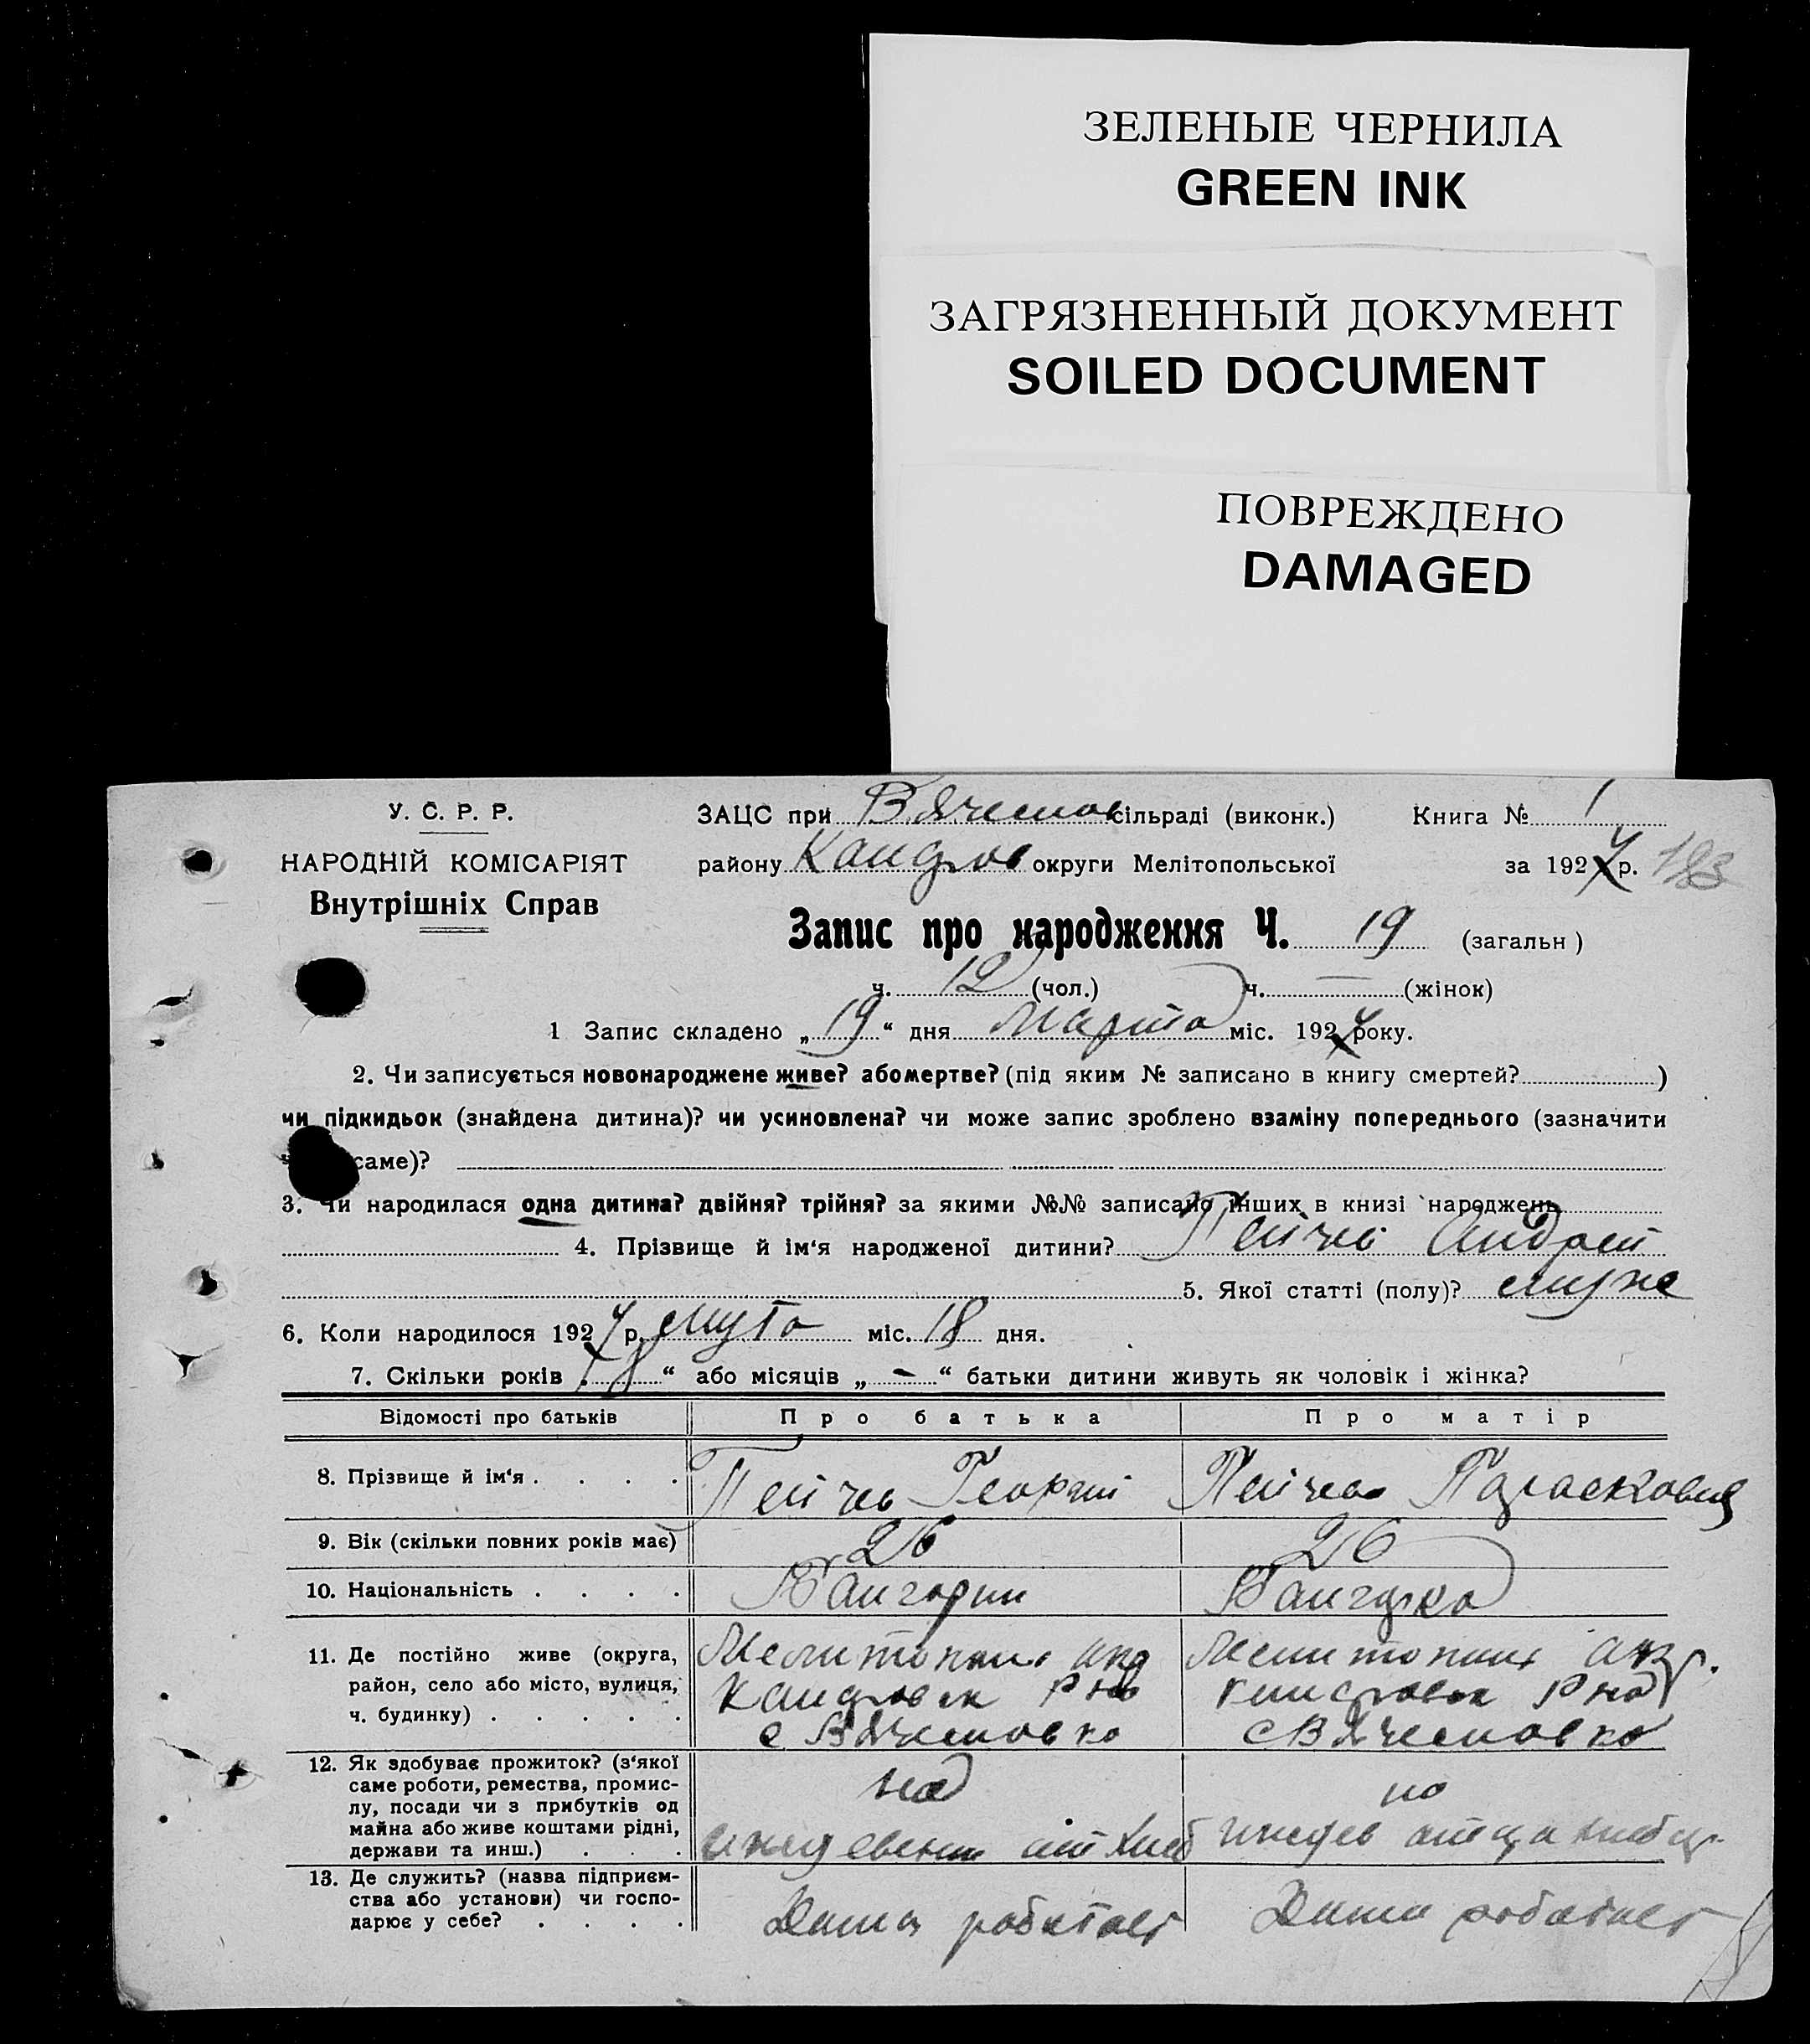 ЗЕЛЕНЫЕ ЧЕРНИЛА
GREEN INK
ЗАГРЯЗНЕННЫЙ ДОКУМЕНТ
SOILED DOCUMENT
ПОВРЕЖДЕНО
DAMAGED
У. С. Р. Р.
НАРОДНІЙ КОМІСАРІЯТ
Внутрішніх Справ
ЗАЦС при В.Ячеслов сільраді (виконк.) Книга № 1
району округи Мелітопольської за 1924 р. 183
Запис про народження Ч. 19 (загальн)
ч. 12 (чол.) ч. — (жінок)
1 Запис складено „19“ дня Марта міс. 1924 року.
2. Чи записується новонароджене живе? або мертве? (під яким № записано в книгу смертей? )
чи підкидьок (знайдена дитина)? чи усиновлена? чи може запис зроблено взаміну попереднього (зазначити
саме)?
3. Чи народилася одна дитина? двійня? трійня? за якими №№ записано інших в книзі народжень
4. Прізвище й ім'я народженої дитини? Пейчев Андрей
5. Якої статті (полу)? муже
6. Коли народилося 1924 р. міс. 18 дня.
7. Скільки років „8“ або місяців „-“ батьки дитини живуть як чоловік і жінка?
Відомості про батьків Про батька Про матір
8. Прізвище й ім'я . . . . Пейчев Георгий Пейчева Парасковия
9. Вік (скільки повних років має) 26 26
10. Національність . . . . Баигарин Баигарка
11. Де постійно живе (округа,
район, село або місто, вулиця,
ч. будинку) . . . . .
Мелитопол окр
р на
с Вячесловка
Мелитопол окр.
р на
с Вячесловка
12. Як здобуває прожиток? (з'якої
саме роботи, ремества, промис-
лу, посади чи з прибутків од
майна або живе коштами рідні,
держави та инш.) . . .
на
на
13. Де служить? (назва підприєм-
ства або установи) чи госпо-
дарює у себе? . . . .
Дома работает
Дома работает